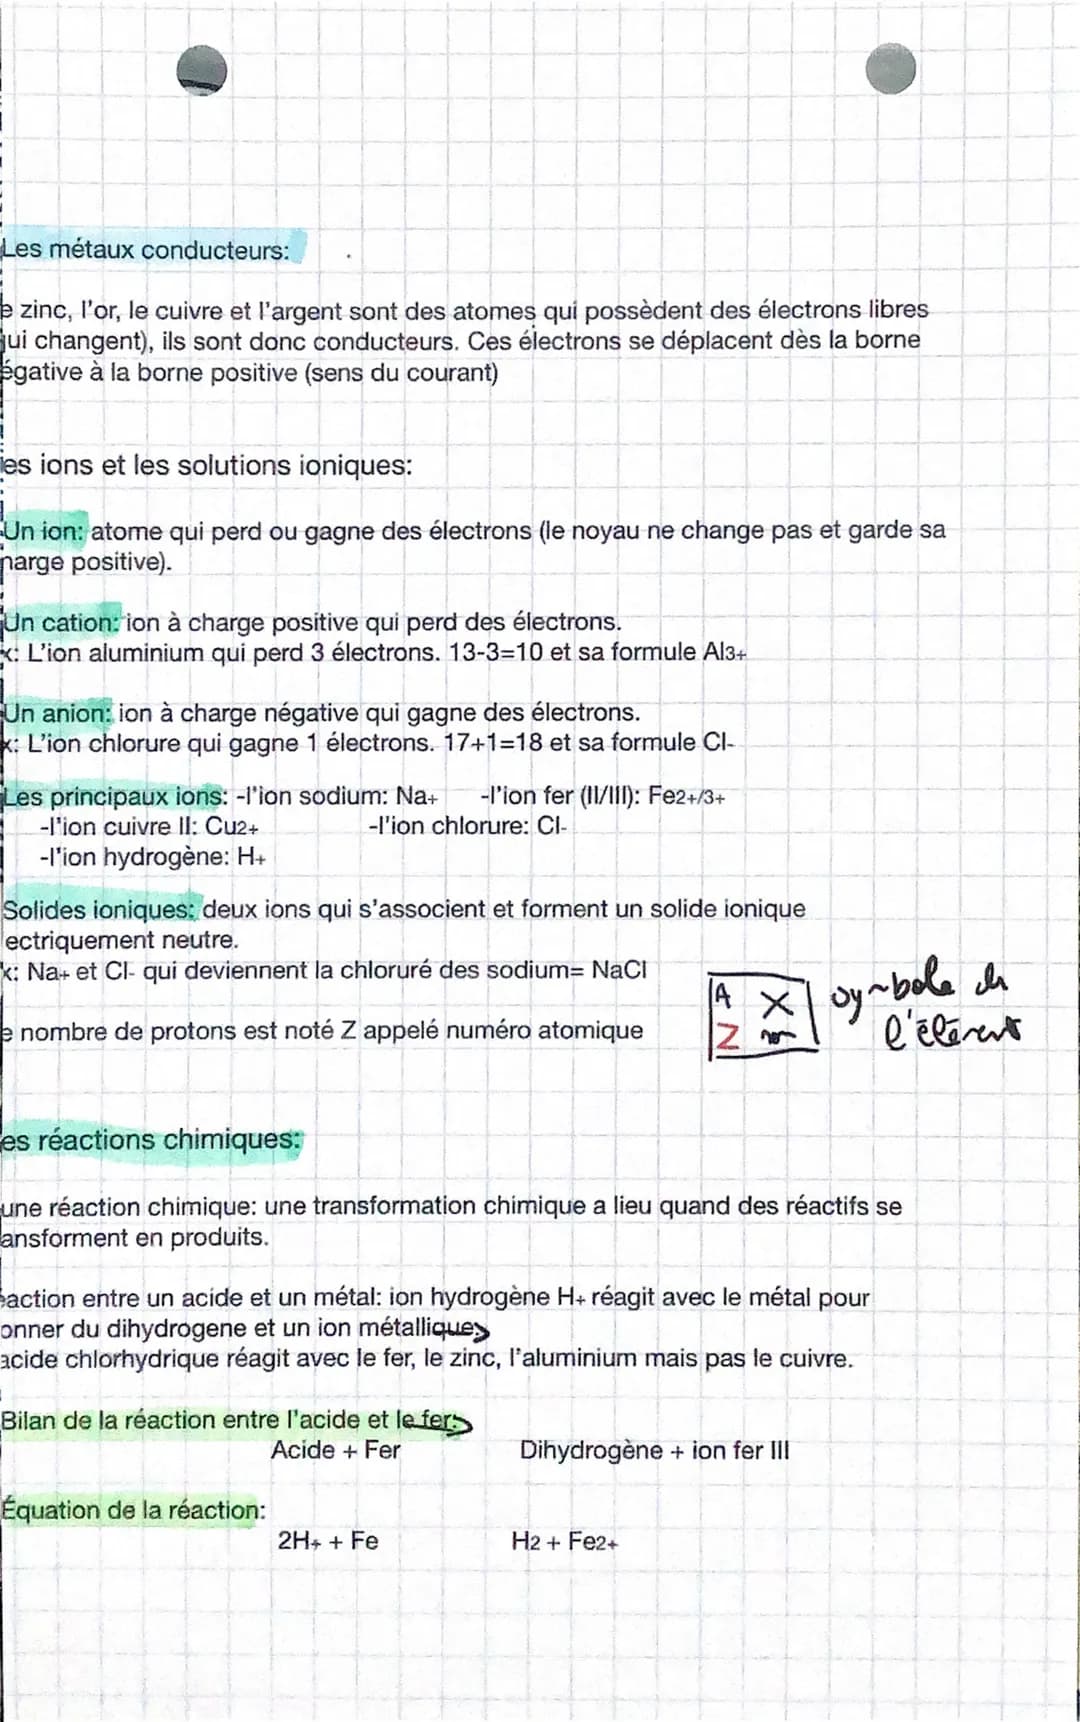 Les métaux conducteurs:
e zinc, l'or, le cuivre et l'argent sont des atomes qui possèdent des électrons libres
qui changent), ils sont donc conducteurs. Ces électrons se déplacent dès la borne
égative à la borne positive (sens du courant)
es ions et les solutions ioniques:
Un ion: atome qui perd ou gagne des électrons (le noyau ne change pas et garde sa
harge positive).
Un cation: ion à charge positive qui perd des électrons.
x: L'ion aluminium qui perd 3 électrons. 13-3=10 et sa formule Al3+
Un anion: ion à charge négative qui gagne des électrons.
x: L'ion chlorure qui gagne 1 électrons. 17+1=18 et sa formule Cl-
Les principaux ions: -l'ion sodium: Na+ -l'ion fer (II/III): Fe2+/3+
-l'ion cuivre II: Cu2+ -l'ion chlorure: Cl-
-l'ion hydrogène: H+
Solides ioniques: deux ions qui s'associent et forment un solide ionique
ectriquement neutre.
x: Na+ et Cl- qui deviennent la chloruré des sodium= NaCl
A X symbole de
e nombre de protons est noté Z appelé numéro atomique
Z nom l'élément
es réactions chimiques:
une réaction chimique: une transformation chimique a lieu quand des réactifs se
ansforment en produits.
eaction entre un acide et un métal: ion hydrogène H+ réagit avec le métal pour
onner du dihydrogene et un ion métallique>
acide chlorhydrique réagit avec le fer, le zinc, l'aluminium mais pas le cuivre.
Bilan de la réaction entre l'acide et le fer:
Acide + Fer Dihydrogène + ion fer III
Équation de la réaction:
2H+ + Fe H2 + Fe2+